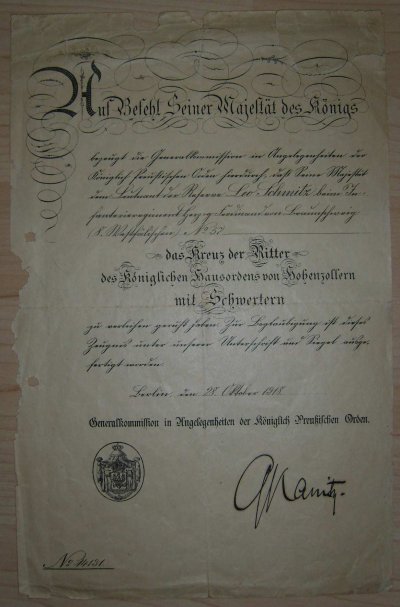 Auf Befehl Seiner Majestät des Königs
bezeugt die Generalkommission in Angelegenheiten der
Königlich Preußischen Orden hierdurch, daß Seine Majestät
dem Leutnant der Reserve Leo Schmitz beim In-
fanterieregiment Herzog Ferdinand von Braunschweig
(8. Westfälischen) No 57
das Kreuz der Ritter
des Königlichen Hausordens von Hohenzollern
mit Schwertern
zu verleihen geruht haben. Zur Beglaubigung ist dieses
Zeugnis unter unserer Unterschrift und Siegel ausge-
fertigt worden.
Berlin, den 28. Oktober 1918.
Generalkommission in Angelegenheiten der Königlich Preußischen Orden.